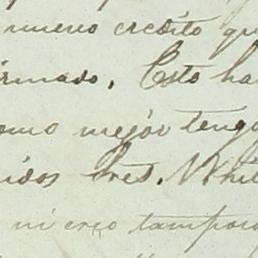 nuevo credito qu
irmado. Esto ha
omo mejor tengo
idos Sres. Whi
ni creo tampoco